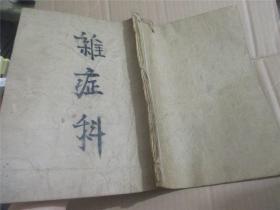 雜症科